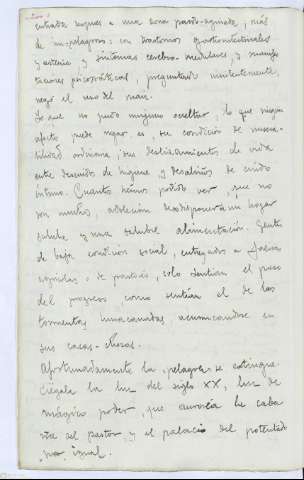 entrada supuse a una zona parda-agrisada, más
de un pelagroso: con trastornos gastrointestinales
y astenia, y síntomas cerebro-medulares, y manifes
taciones psicopáticas, preguntado insistentemente,
negó el uso del maíz.
Lo que no pudo ninguno ocultar, lo que ningún
afecto puede negar, es, su condición de misera
bilidad ordinaria, sus deslizamientos de vida
entre descuidos de higiene y desaliños de cuido
íntimo. Cuantos hemos podido ver, que no
son muchos, adolecían de disponer de un hogar
salubre y una salubre alimentación. Gente
de baja condición social, entregados a faenas
agrícolas, o de pastoreo, solo sentían el paso
del progreso, como sentían el de las
tormentas, amacanadas acurrucándose en
sus casas-chozas.
Afortunadamente la pelagra se extingue
Ciégala la luz del siglo XX, luz de
mágico poder, que aureola la caba
ña del pastor y el palacio del potentado
por igual.